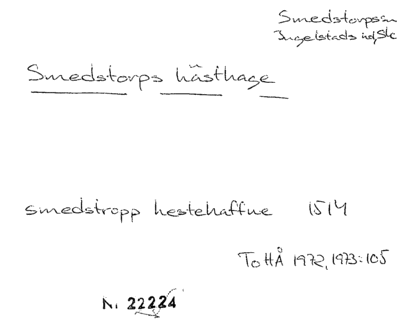 Smedstorps sn
Ingelstads hd, Sk
Smedstorps hästhage
smedstropp hestehaffue 1514
ToHÅ 1972, 1973:105
N. 22224